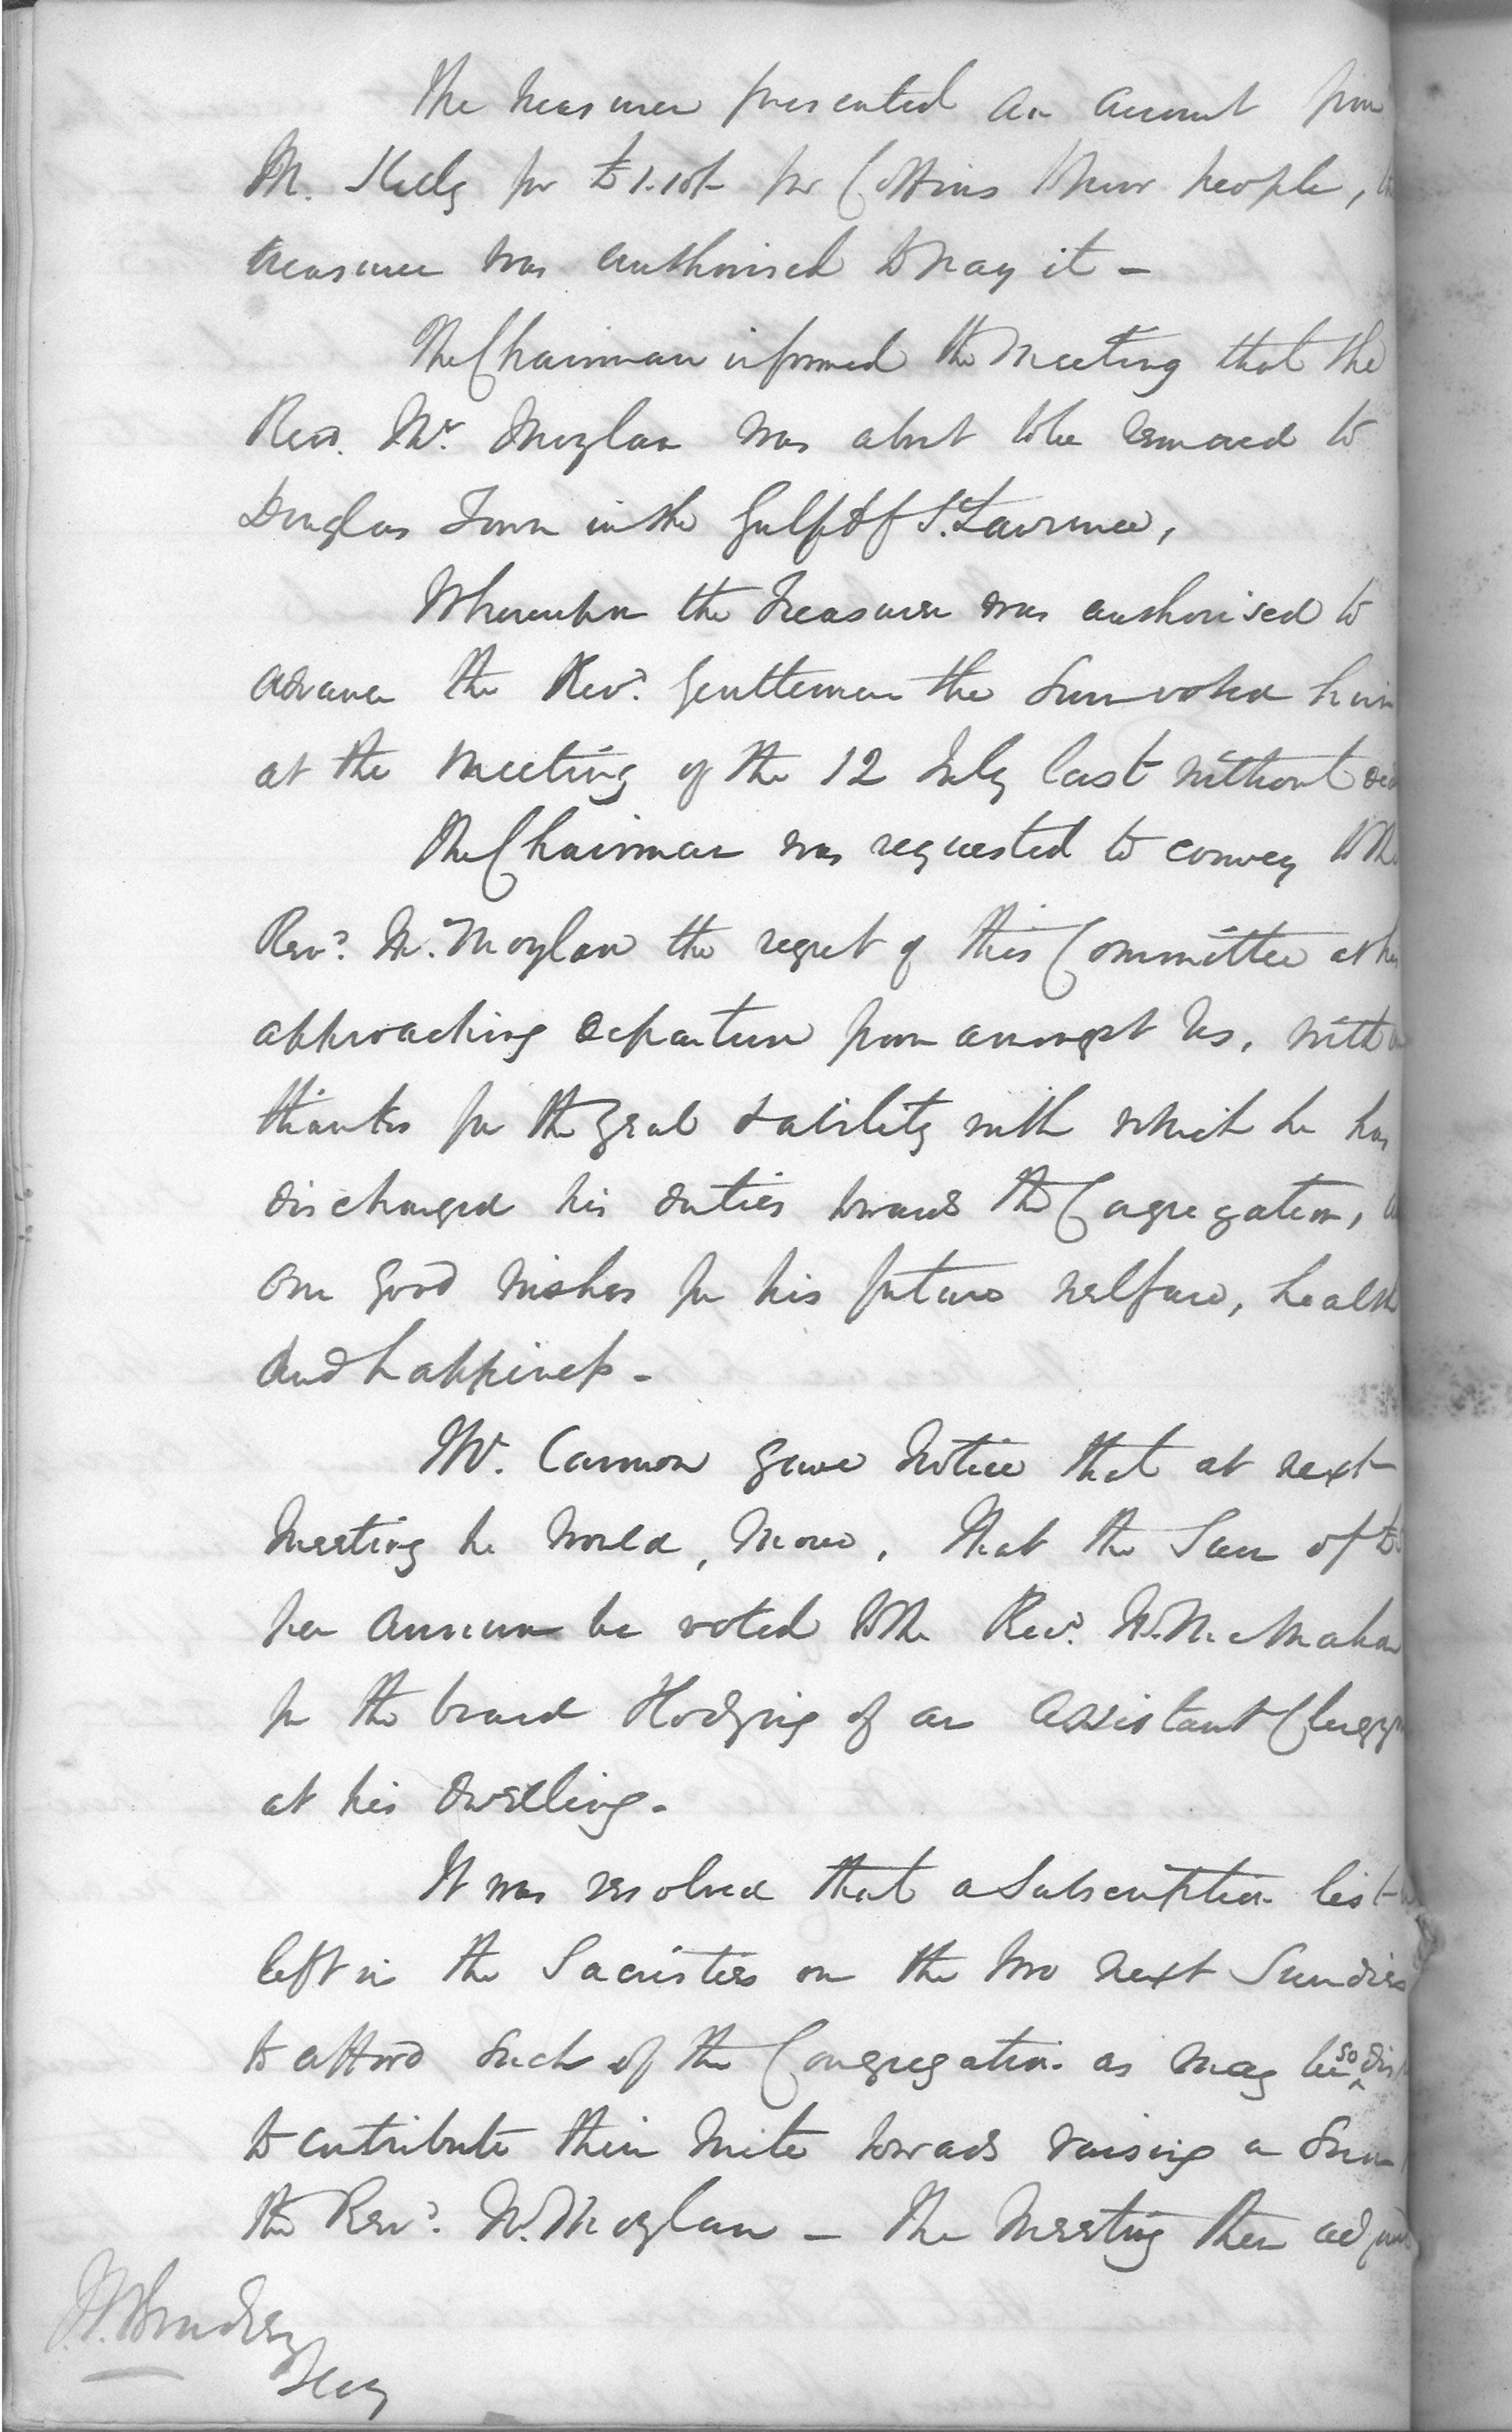 The treasurer presented an account from
M. Kiely for £1.10/- for Coffins to poor people, the
treasurer was authorised to pay it -
The Chairman informed the Meeting that the
Revd. Mr. Moylan was about to be removed to
Douglas Town in the Gulph of St. Lawrence,
Whereupon the Treasurer was authorised to
advance the Revd. Gentleman the Sum voted him
at the Meeting of the 12 July last without
The Chairman was requested to convey to the
Revd. Mr. Moylan the regret of this Committee at his
approaching departure from amongst us, with our
thanks for the zeal & ability with which he has
discharged his duties towards the Congregation, and
our good wishes for his future welfare, health
and happiness -
Mr. Cannon gave Notice that at next
Meeting he would, move, that the Sum of £
per annum be voted to the Revd. Mr. McMahon
for the board & lodging of an assistant Clergyman
at his dwelling -
It was resolved that a Subscription list be
left in the Sacristies on the two next Sundies
to afford such of the Congregation as may be so
to contribute their mite towards raising a Sum
the Revd. Mr. Moylan - The Meeting then adjourned
Secy